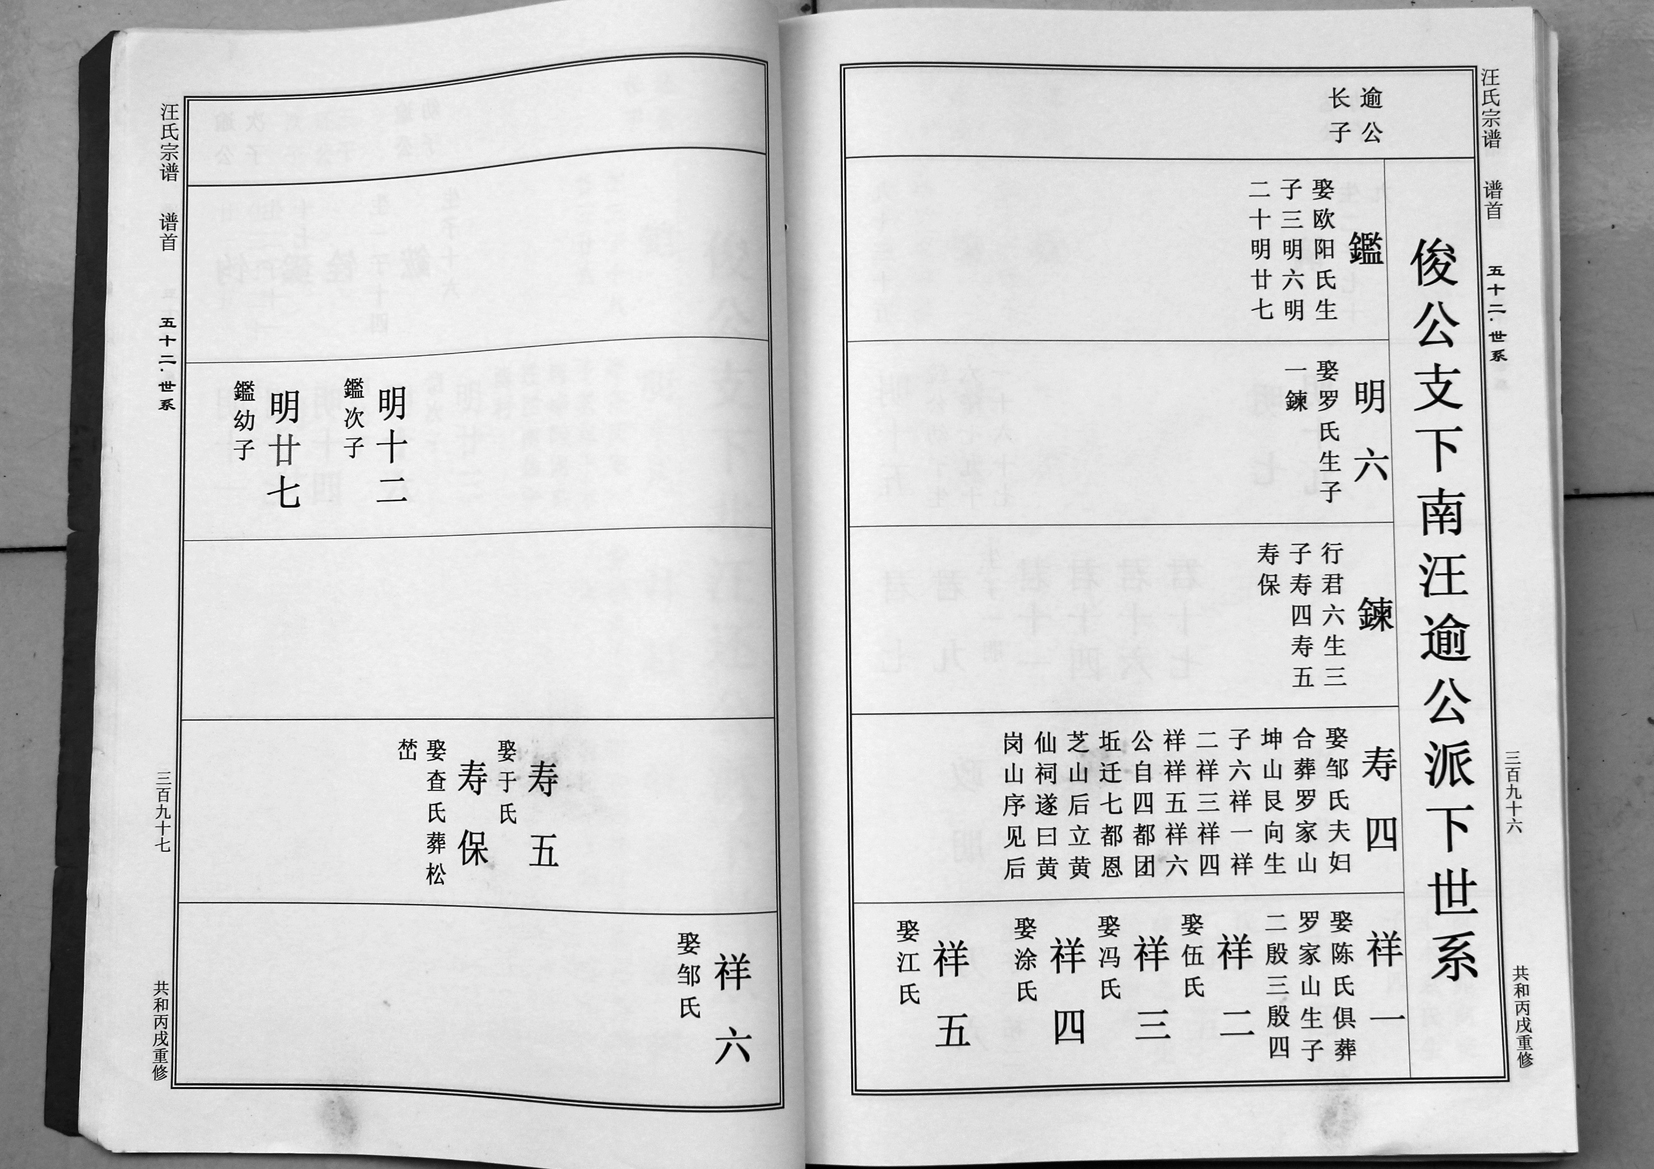 汪氏宗谱 谱首 五十二·世系 三百九十六 共和丙戌重修
俊公支下南汪逾公派下世系
逾公
长子
鑑
娶欧阳氏生
子三明六明
二十明廿七
明六
娶罗氏生子
一鍊
鍊
行君六生三
子寿四寿五
寿保
寿四
娶邹氏夫妇
合葬罗家山
坤山艮向生
子六祥一祥
二祥三祥四
祥祥五祥六
公自四都团
坵迁七都恩
芝山后立黄
仙祠遂曰黄
岗山序见后
祥一
娶陈氏俱葬
罗家山生子
二殷三殷四
祥二
娶伍氏
祥三
娶冯氏
祥四
娶涂氏
祥五
娶江氏
明十二
鑑次子
明廿七
鑑幼子
寿五
娶于氏
寿保
娶查氏葬松
祥六
娶邹氏
汪氏宗谱 谱首 五十二·世系 三百九十七 共和丙戌重修